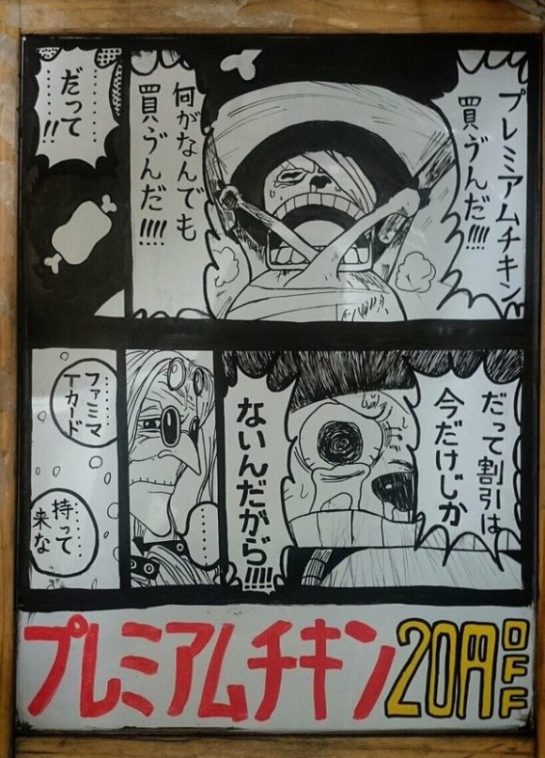 プレミアムチキン
買ゔんだ!!!!
何がなんでも
買ゔんだ!!!!
………
だって
………!!
だって割引は
今だけじか
ないんだがら゙!!!!
……
ファミマ
Tカード
持って
来な
プレミアムチキン20円OFF